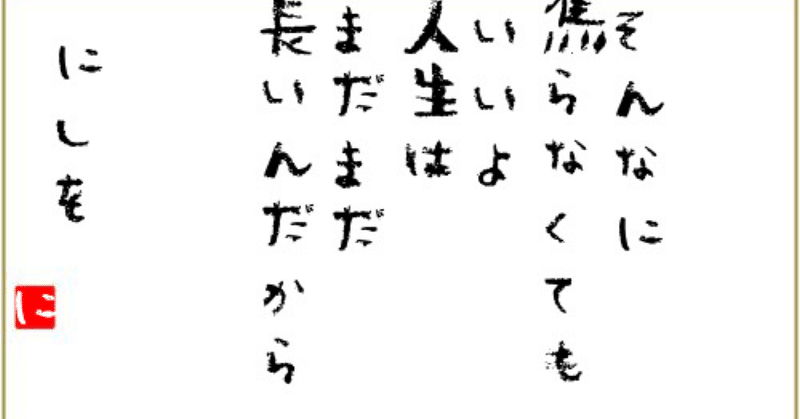 そんなに
焦らなくても
いいよ
人生は
まだまだ
長いんだから
にしを
に